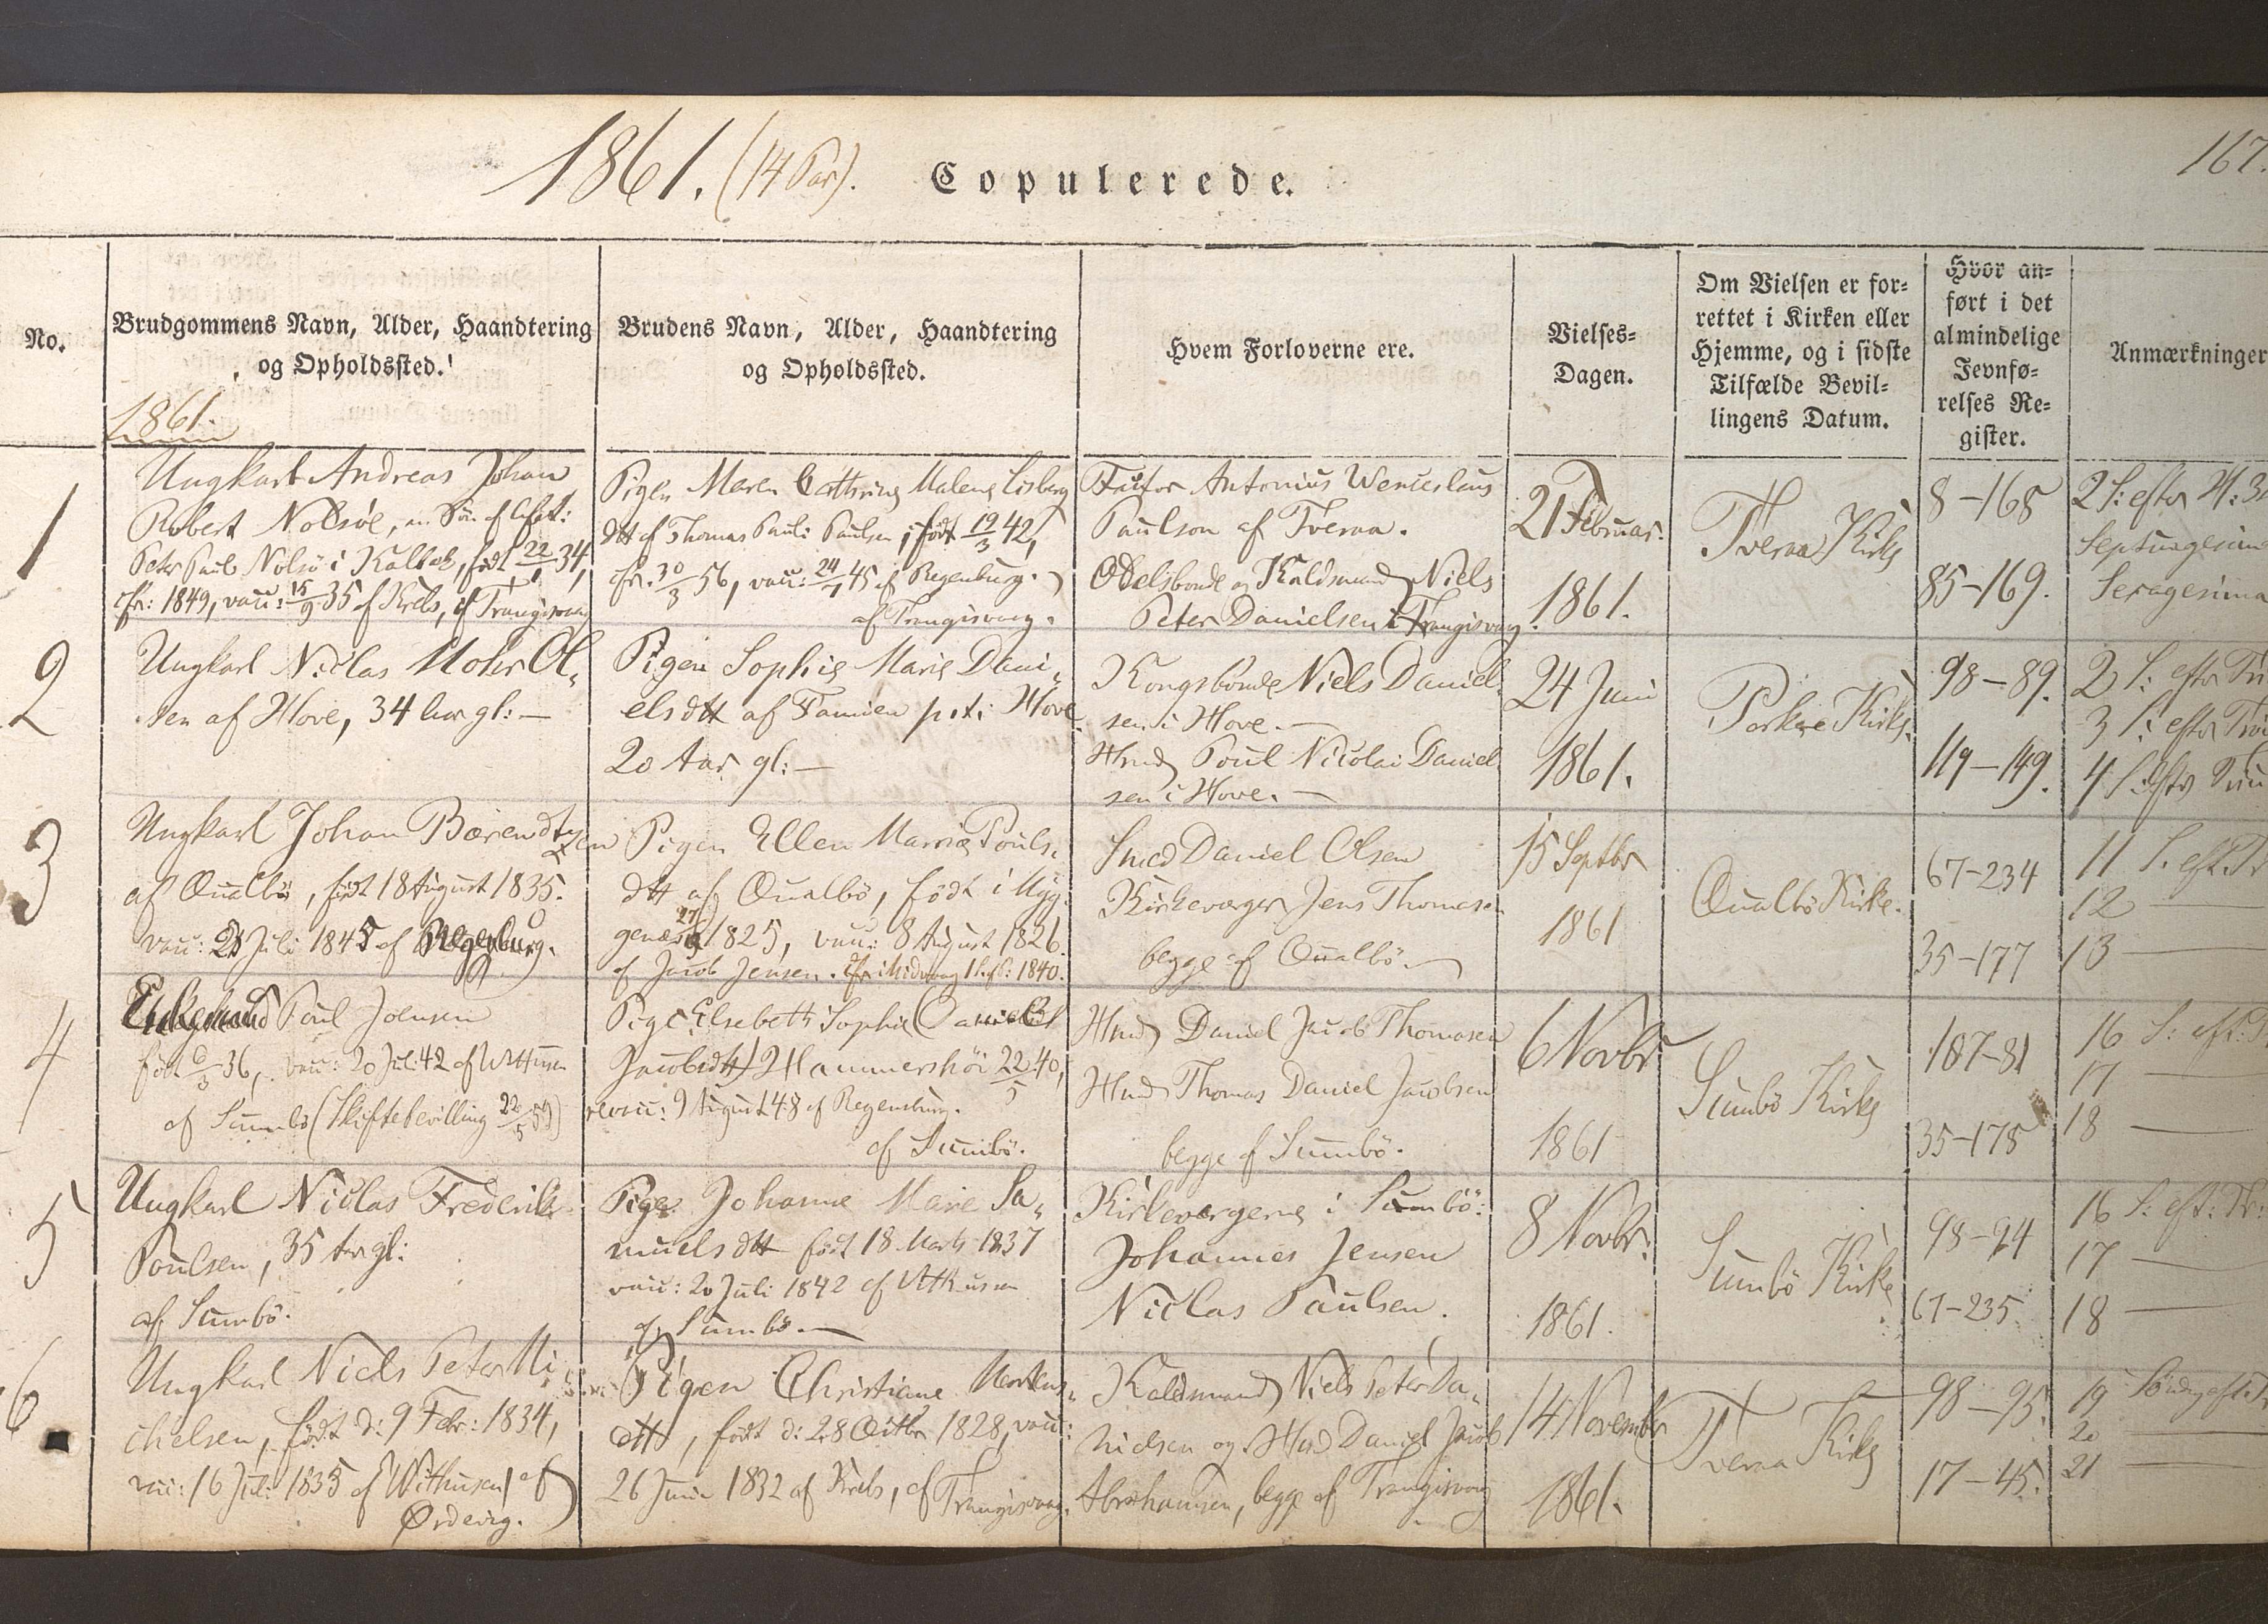 1861. (14 Par). Copulerede. 167.
No.
Brudgommens Navn, Alder, Haandtering
og Opholdssted.
Brudens Navn, Alder, Haandtering
og Opholdssted.
Hvem Forloverne ere.
Vielses-
Dagen.
Om Vielsen er for-
rettet i Kirken eller
Hjemme, og i sidste
Tilfælde Bevil-
lingens Datum.
Hvor an-
ført i det
almindelige
Jevnfø-
relses Re-
gister.
Anmærkninger
1861.
1
Ungkarl Andreas Johan
Robert Nolsöe, en Søn af
Peter Paul Nolsö i Kalbak, født 22/1 34,
cfr: 1849, vacc: 15/9 35 af Krebs, af Trangisvaag
Pigen Maren Cathrine Malene Lisberg
dtt af Thomas Pauli Paulsen, født 19/3 42,
cfr. 30/3 56, vacc: 24/7 45 af Regenburg.
af Trangisvaag.
Factor Antonius Wenceslaus
Paulson af Tveraa.
Odelsbonde og Kaldsmand Niels
Peter Danielsen i Trangisvaag.
21 Februar.
1861.
Tveraa Kirke
8-168
85-169.
2 S: efter H: 3
Septuagesima
Sexagesima
2
Ungkarl Niclas Mohr Ol-
sen af Hove, 34 Aar gl: —
Pigen Sophie Marie Dani-
elsdtt af Famien p.t. i Hove
20 Aar gl: —
Kongsbonde Niels Daniel-
sen i Hove. —
Hmd Poul Nicolai Daniel
sen i Hove. —
24 Juni
1861.
Porkere Kirke.
98-89.
119-149.
2 S: efter Tri
3 S: efter Tri
4 S: efter Tri
3
Ungkarl Johan Bærendtsen
af Qualbö, født 18 August 1835.
vacc: 21 Juli 1845 af Regenburg.
Pigen Ellen Marrie Pouls-
dtt af Qualbö, født i Myg-
genæs 27/3 1825, vacc: 8 August 1826.
af Jacob Jensen. Cfr i Midvaag 1840.
Smed Daniel Olsen
Kirkeværger Jens Thomasen
begge af Qualbö
15 Septbr
1861
Qualbö Kirke.
67-234
35-177
11 S. eft. Tr
12 —
13 —
4
Enkemand Poul Joensen
født 6/3 36, vacc: 20 Juli 42 af Withusen
af Sumbö (Skiftebevilling 22/5 59)
Pige Elsebeth Sophie (Daniel
Jacobsdtt) Hammershöi 22/5 40,
revacc: 9 August 48 af Regenburg.
af Sumbö.
Hmd Daniel Jacob Thomasen
Hmd Thomas Daniel Jacobsen
begge af Sumbö.
6 Novbr
1861
Sumbö Kirke
107-81
35-178
16 S: eft: Tr
17 —
18 —
5
Ungkarl Niclas Frederik
Poulsen, 35 Aar gl:
af Sumbö.
Pige Johanne Marie Sa-
muelsdtt født 18 Marts 1837
vacc: 20 Juli 1842 af Withusen
af Sumbö. —
Kirkeværgerne i Sumbö:
Johannes Jensen
Niclas Paulsen.
8 Novbr:
1861.
Sumbö Kirke
98-94
67-235.
16 S: eft: Tr:
17 —
18 —
6
Ungkarl Niels Peter Mi-
chelsen, født d: 9 Febr: 1834,
vacc: 16 Juli 1835 af Withusen, af
Ørdevig.
Pigen Christiane Mortens-
dtt, født d: 28 Octbr 1828, vacc:
26 Juni 1832 af Krebs, af Trangisvaag.
Kaldsmand Niels Peter Da-
nielsen og Hmd Daniel Jacob
Abrahamsen, begge af Trangisvaag
14 November
1861.
Tveraa Kirke
98-95.
17-45.
19 Søndag eft. Tr
20 —
21 —